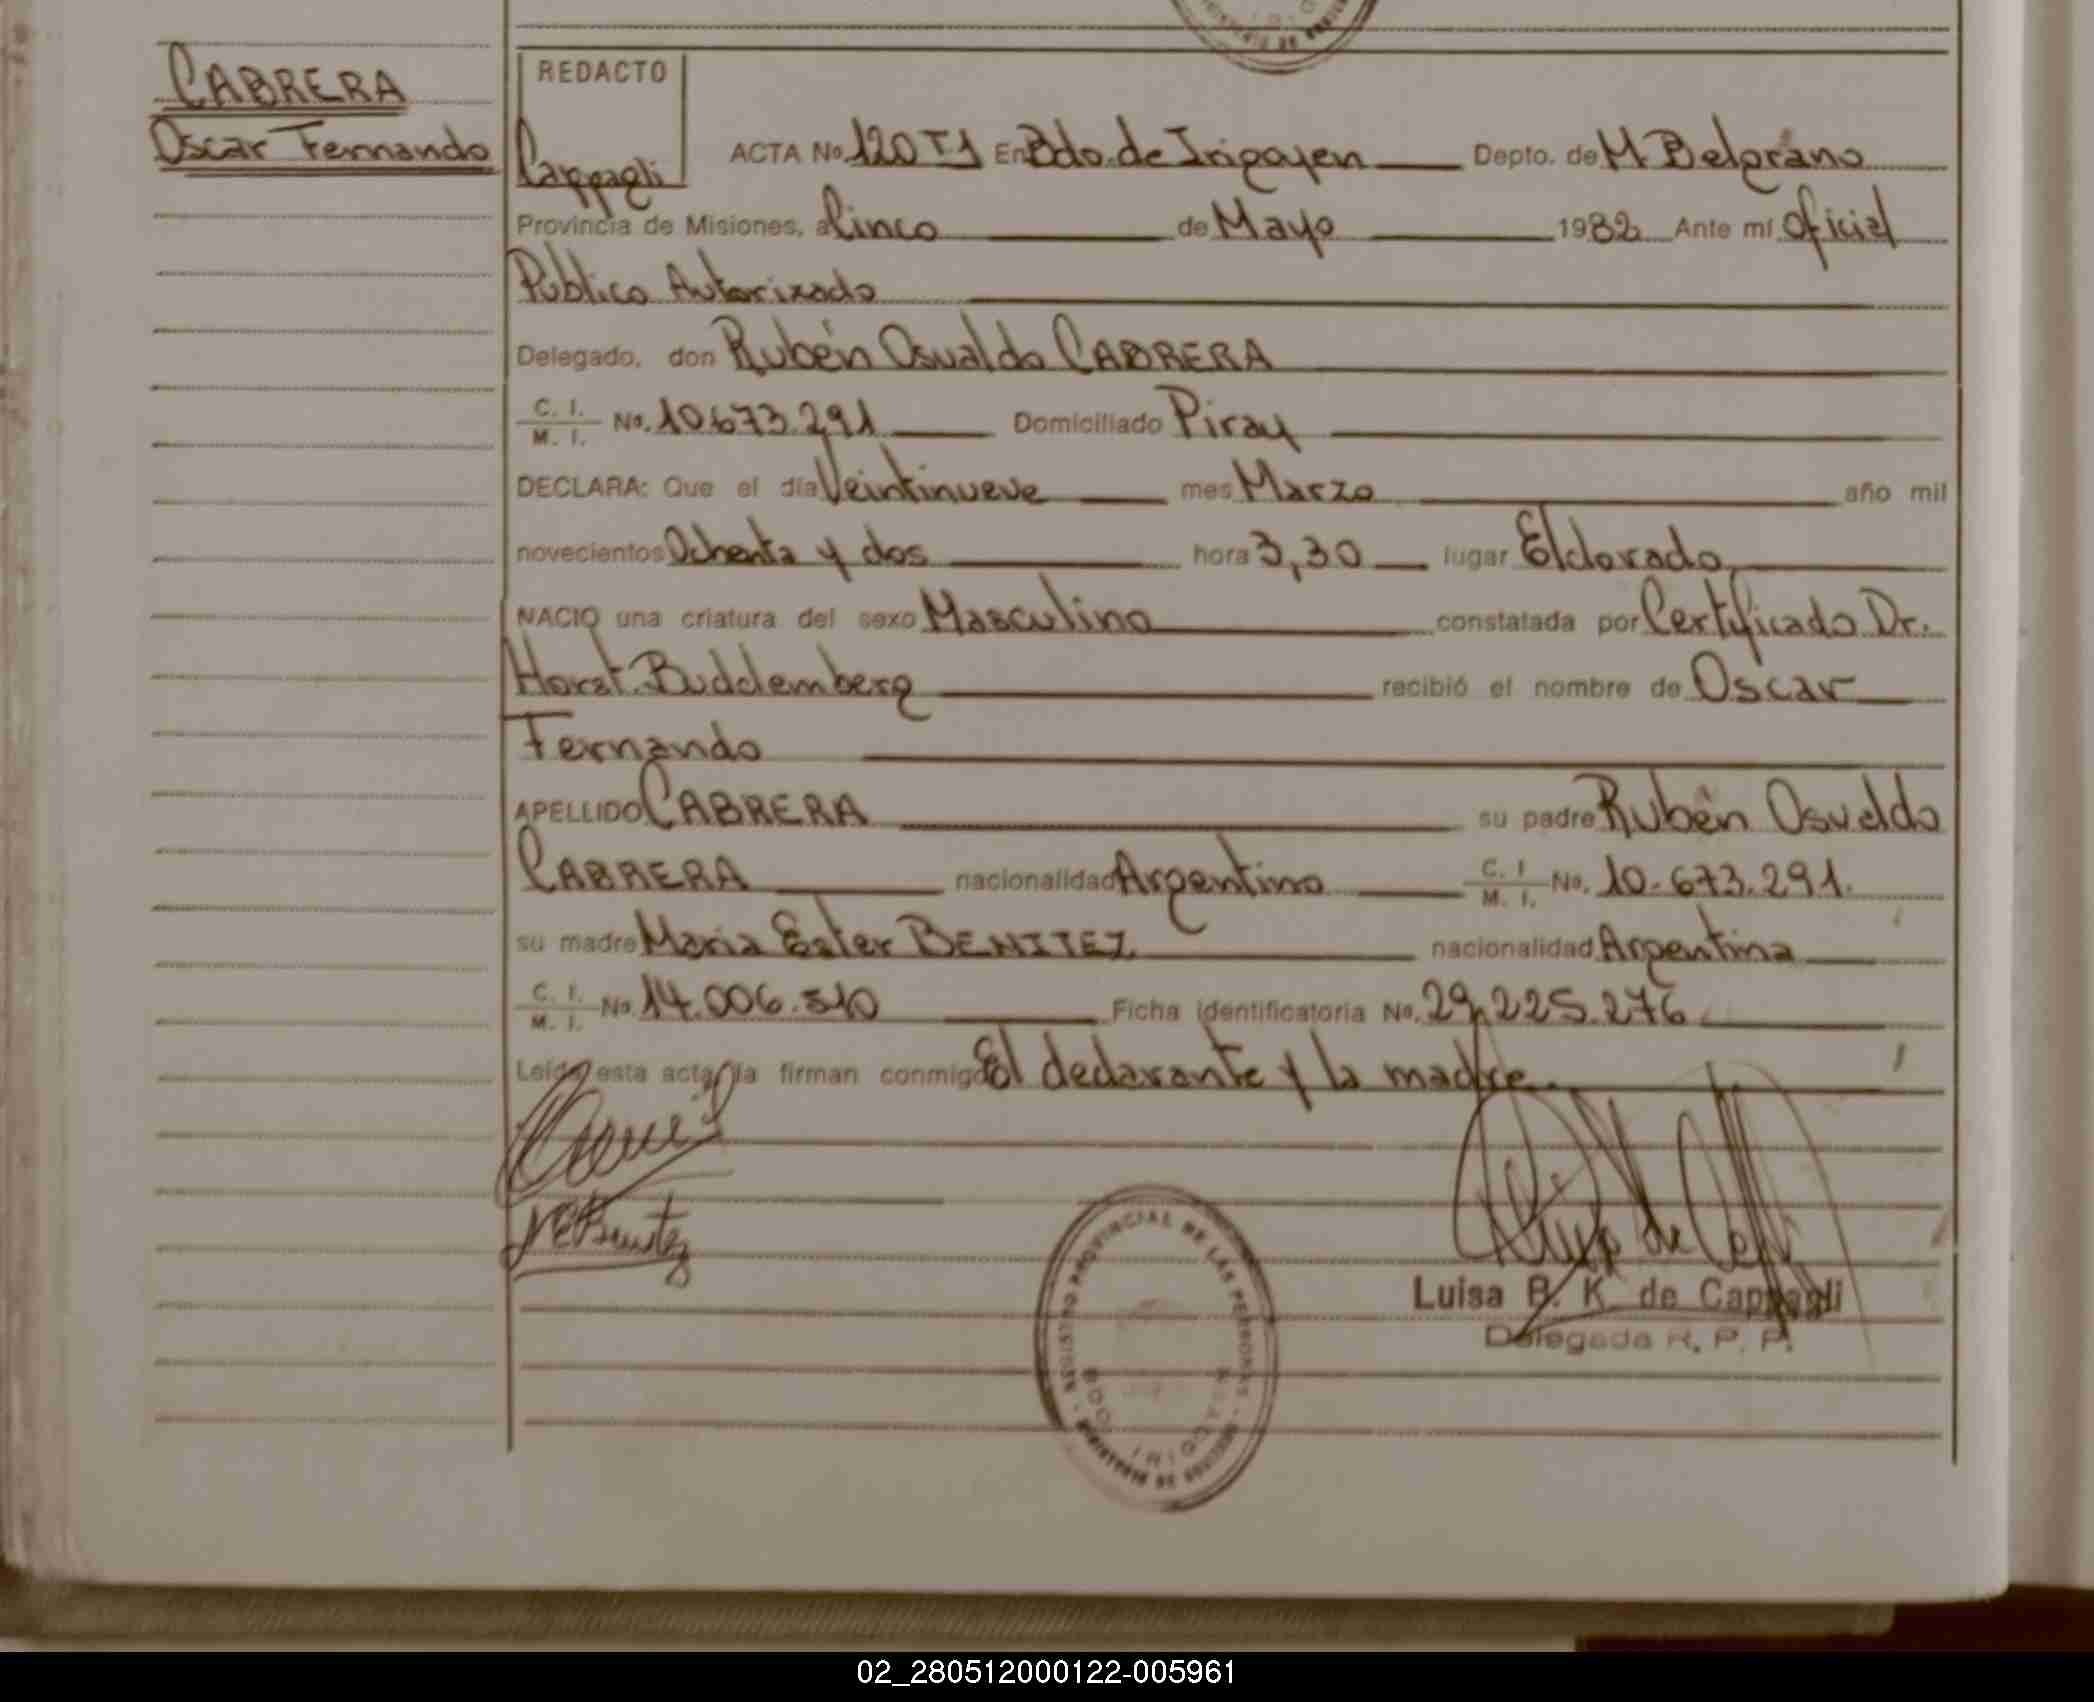 CABRERA
Oscar Fernando
REDACTO
Cappagli
ACTA No. 120 T1 En Bdo. de Irigoyen Depto. de M. Belgrano
Provincia de Misiones, a Cinco de Mayo 1982 Ante mí Oficial
Público Autorizado
Delegado, don Rubén Osvaldo CABRERA
C. I. M. I. No. 10.673.291 Domiciliado Piray
DECLARA: Que el día Veintinueve mes Marzo año mil
novecientos Ochenta y dos hora 3,30 lugar Eldorado
NACIO una criatura del sexo Masculino constatada por Certificado Dr.
Horst. Buddemberg recibió el nombre de Oscar
Fernando
APELLIDO CABRERA su padre Rubén Osvaldo
CABRERA nacionalidad Argentino C. I. M. I. No. 10.673.291.
su madre María Ester BENITEZ nacionalidad Argentina
C. I. M. I. No. 14.006.510 Ficha identificatoria No. 29.225.276
Leída esta acta, la firman conmigo El declarante y la madre.
M E Benitez
REGISTRO PROVINCIAL DE LAS PERSONAS
Luisa B. K. de Cappagli
Delegada R. P. P.
02_280512000122-005961